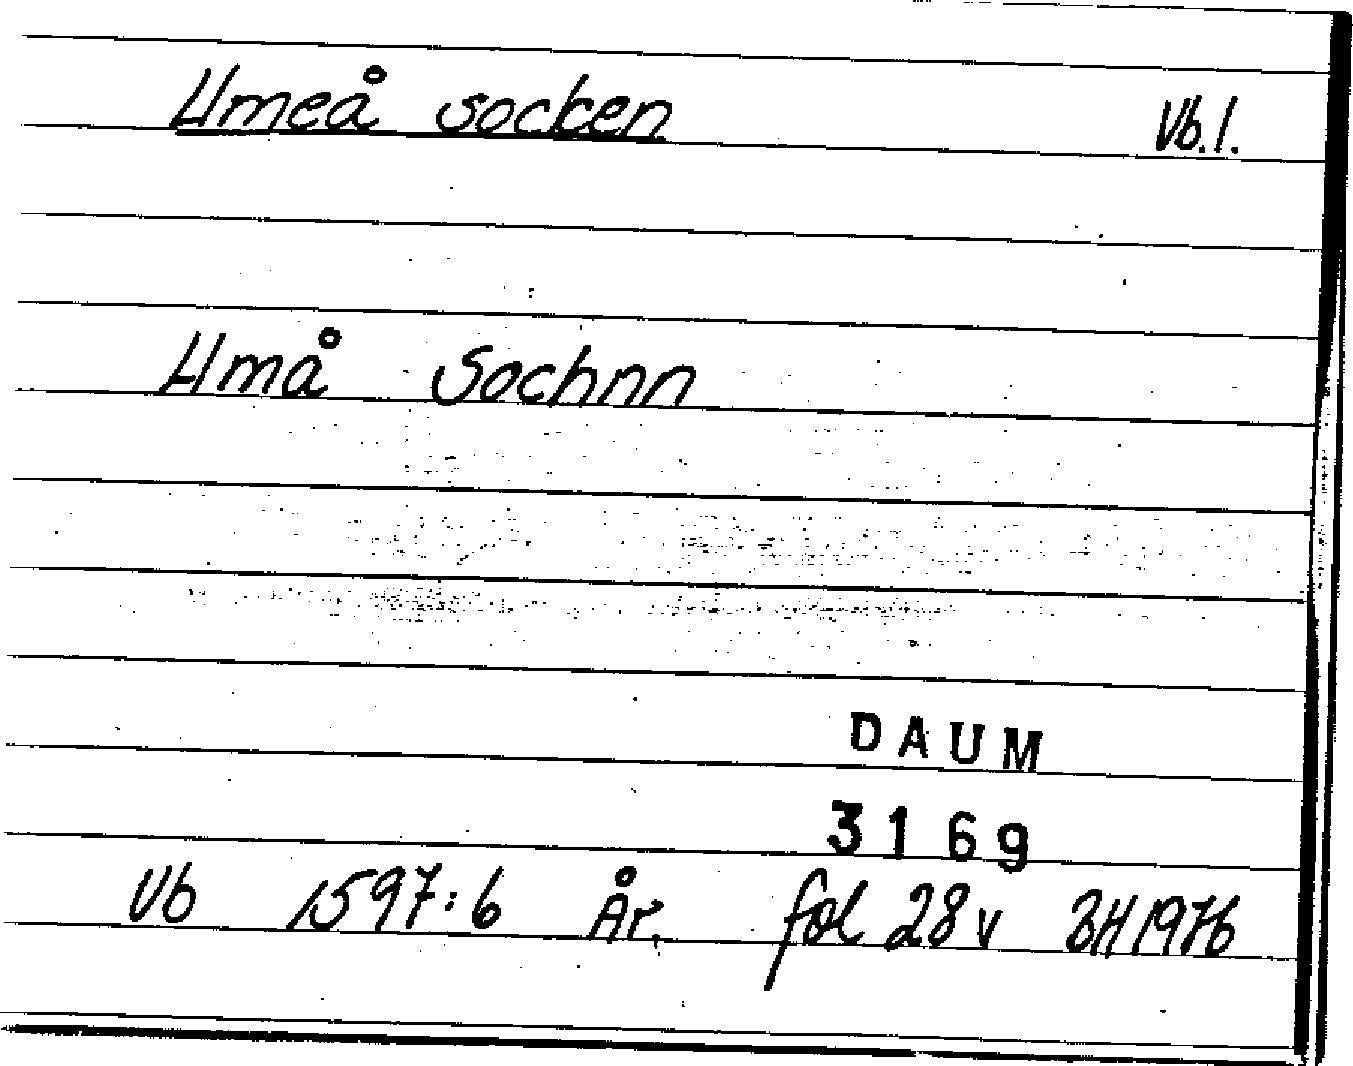 Umeå socken Vb.l.
Umå Sochnn
DAUM
3169
Vb 1597:6 År. fol 28 v BH 1976